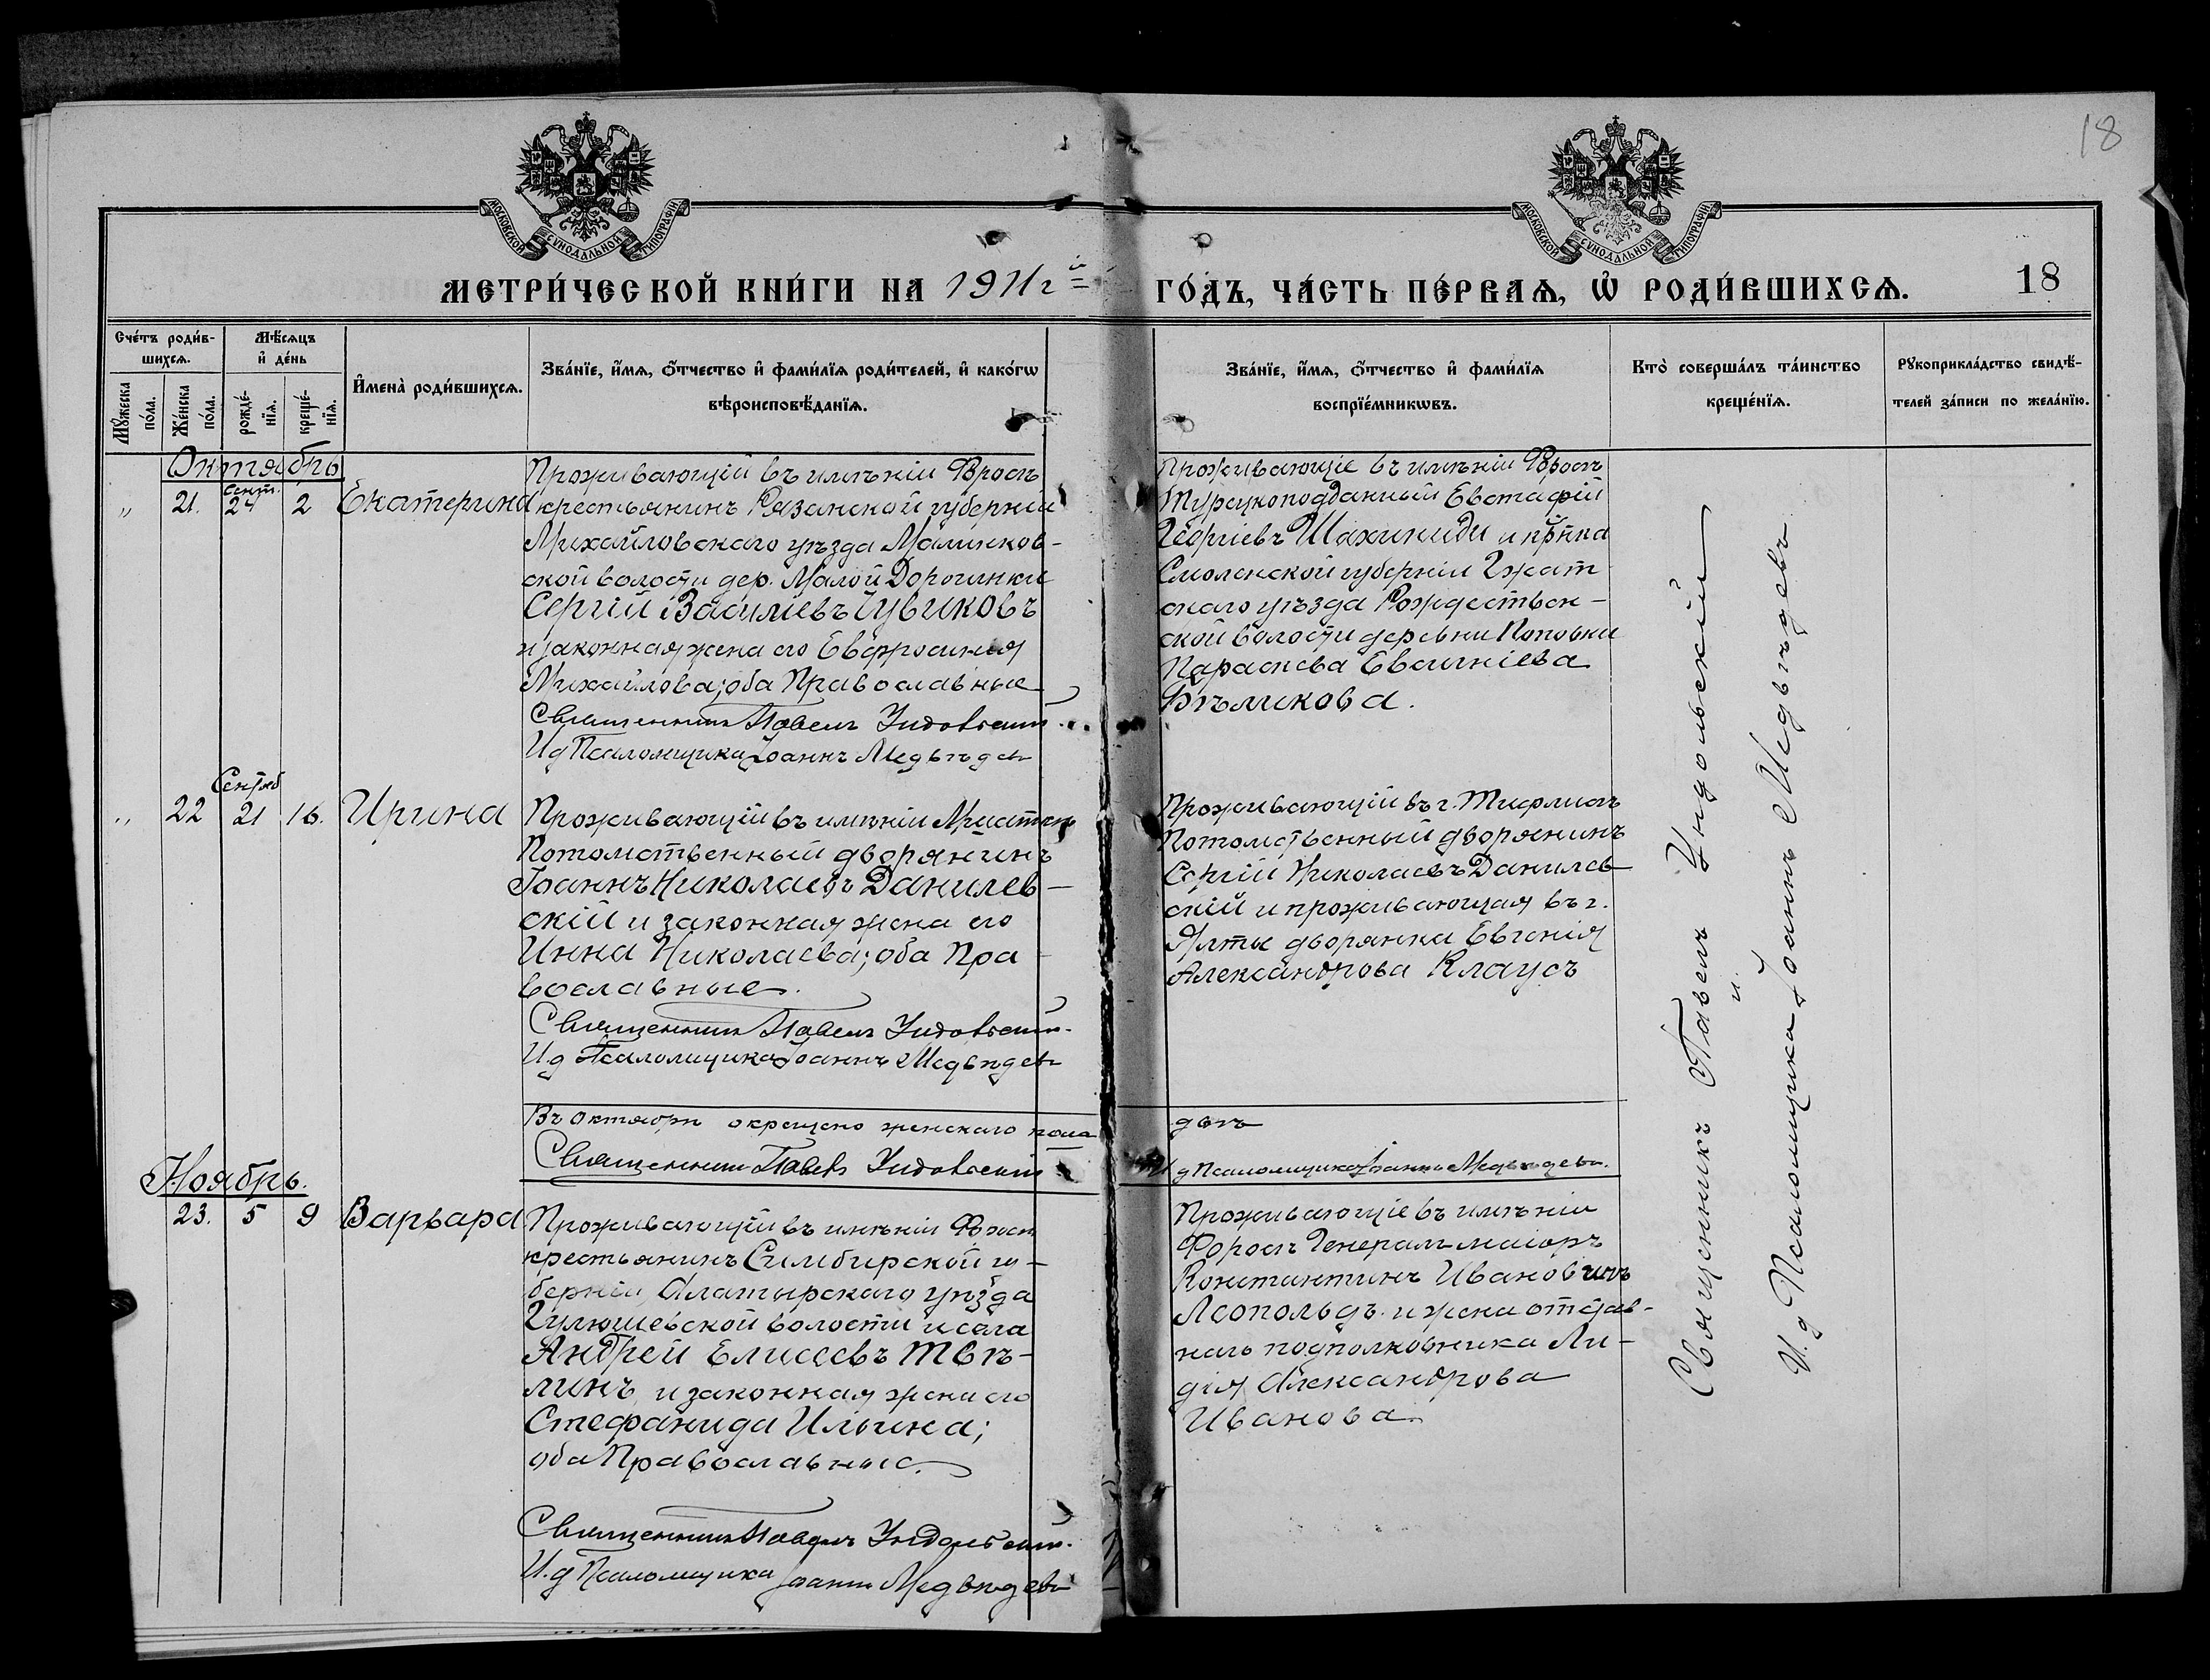 18
МОСКОВСКОЙ СѴНОДАЛЬНОЙ ТИПОГРАФІИ
МОСКОВСКОЙ СѴНОДАЛЬНОЙ ТИПОГРАФІИ
МЕТРИ́ЧЕСКОЙ КНИ́ГИ НА 1911 г҃ ГО́ДЪ, ЧА́СТЬ ПЕ́РВАѦ, Ѡ РОДИ́ВШИХСѦ. 18
Сче́тъ роди́в-
шихсѧ.
Мꙋ́жеска по́ла.
Же́нска по́ла.
Мѣ́сѧцъ
и҆ де́нь
рожде́-
нїѧ.
креще́-
нїѧ.
И҆мена̀ роди́вшихсѧ.
Зва́нїе, и҆́мѧ, ѻ҆́тчество и҆ фами́лїѧ роди́телей, и҆ како́гѡ
вѣроисповѣ́данїѧ.
Зва́нїе, и҆́мѧ, ѻ҆́тчество и҆ фами́лїѧ
воспрїе́мникѡвъ.
Кто̀ соверша́лъ та́инство
креще́нїѧ.
Рꙋкоприкла́дство свидѣ́-
телей за́писи по жела́нїю.
Октябрь
„ 21. Сент. 24 2 Екатерина
Проживающій въ имѣніи Форосъ
крестьянинъ Рязанской губерніи
Михайловскаго уѣзда Малинков-
ской волости дер. Малой Дорогинки
Сергій Васильевъ Чувиковъ
и законная жена его Евфросинія
Михайлова; оба Православные
Священникъ Павелъ Ундольскій.
И д Псаломщика Іоаннъ Медвѣдевъ
Проживающіе въ имѣніи Форосъ
Турецкоподданный Евстафій
Георгіевъ Шахиниди и кр̃нка
Смоленской губерніи Гжат
скаго уѣзда Рождествен-
ской волости деревни Поповки
Параскева Евсигніева
Бѣликова.
„ 22 Сентяб 21 16. Ирина
Проживающій въ имѣніи Мшатка
Потомственный дворянинъ
Іоаннъ Николаевъ Данилев-
скій и законная жена его
Инна Николаева; оба Пра-
вославные.
Священникъ Павелъ Ундольскій.
И.д Псаломщика Іоаннъ Медвѣдевъ
Проживающій въ г. Тифлисѣ
Потомственный дворянинъ
Сергій Николаевъ Данилев
скій и проживающая въ г.
Ялты дворянка Евгенія
Александрова Клаусъ
Въ Октябрѣ окрещено женскаго пола двѣ
Священникъ Павелъ Ундольскій И д Псаломщика Іоаннъ Медвѣдевъ.
Ноябрь.
23. 5 9 Варвара
Проживающій въ имѣніи Форосъ
крестьянинъ Симбирской гу-
берніи, Алатырскаго уѣзда
Гулюшевской волости и села
Андрей Елисеевъ Твѣ-
линъ и законная жена его
Стефанида Ильина;
оба Православные.
Священникъ Павелъ Ундольскій.
И.д Псаломщика Іоаннъ Медвѣдевъ
Проживающіе въ имѣніи
Форосъ Генералъ-маіоръ
Константинъ Ивановичъ
Леопольдъ и жена отстав-
наго подполковника Ли-
дія Александрова
Иванова.
Священникъ Павелъ Ундольскій
и
И. д Псаломщика Іоаннъ Медвѣдевъ